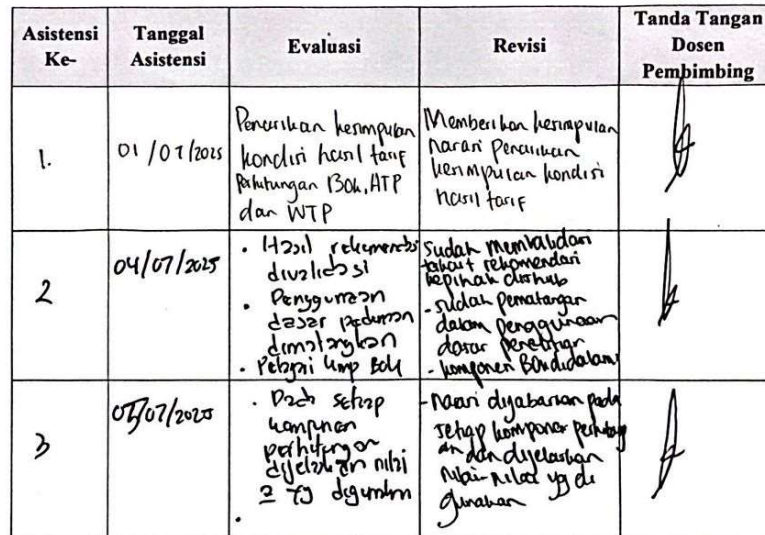 Asistensi Ke-
Tanggal Asistensi
Evaluasi
Revisi
Tanda Tangan Dosen Pembimbing
1.
01/07/2025
Penarikan kesimpulan
kondisi hasil tarif
Perhitungan BOK, ATP
dan WTP
Memberikan kesimpulan
narasi penarikan
kesimpulan kondisi
hasil tarif
2
04/07/2025
• Hasil rekomendasi
divalidasi
• Penggunaan
dasar pedoman
dimatangkan
• Pelajari komp BOK
sudah memvalidasi
terkait rekomendasi
kepihak dishub
- sudah pematangan
dalam penggunaan
dasar penelitian
- komponen BOK didalami
3
07/2025
• Pada setiap
komponen
perhitungan
dijelaskan nilai
2 yg digunakan
- Narasi dijabarkan pada
setiap komponen perhitung
an dan dijelaskan
nilai-nilai yg di
gunakan